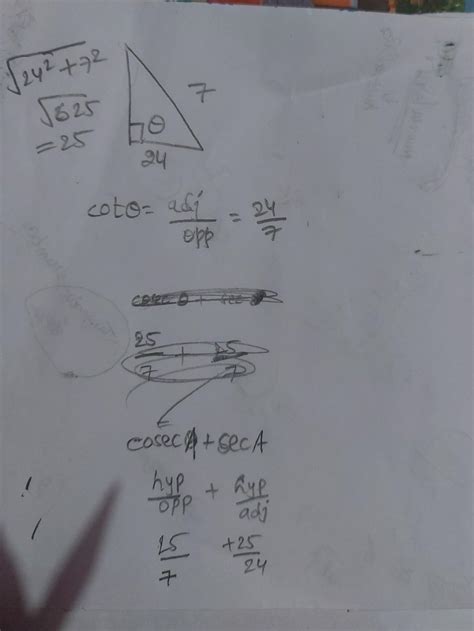 √24²+7²
√625
= 25
7
θ
24
cotθ = adj/opp = 24/7
cosec θ + sec θ
25/7 + 25/7
cosecA + secA
hyp/opp + hyp/adj
25/7 + 25/24